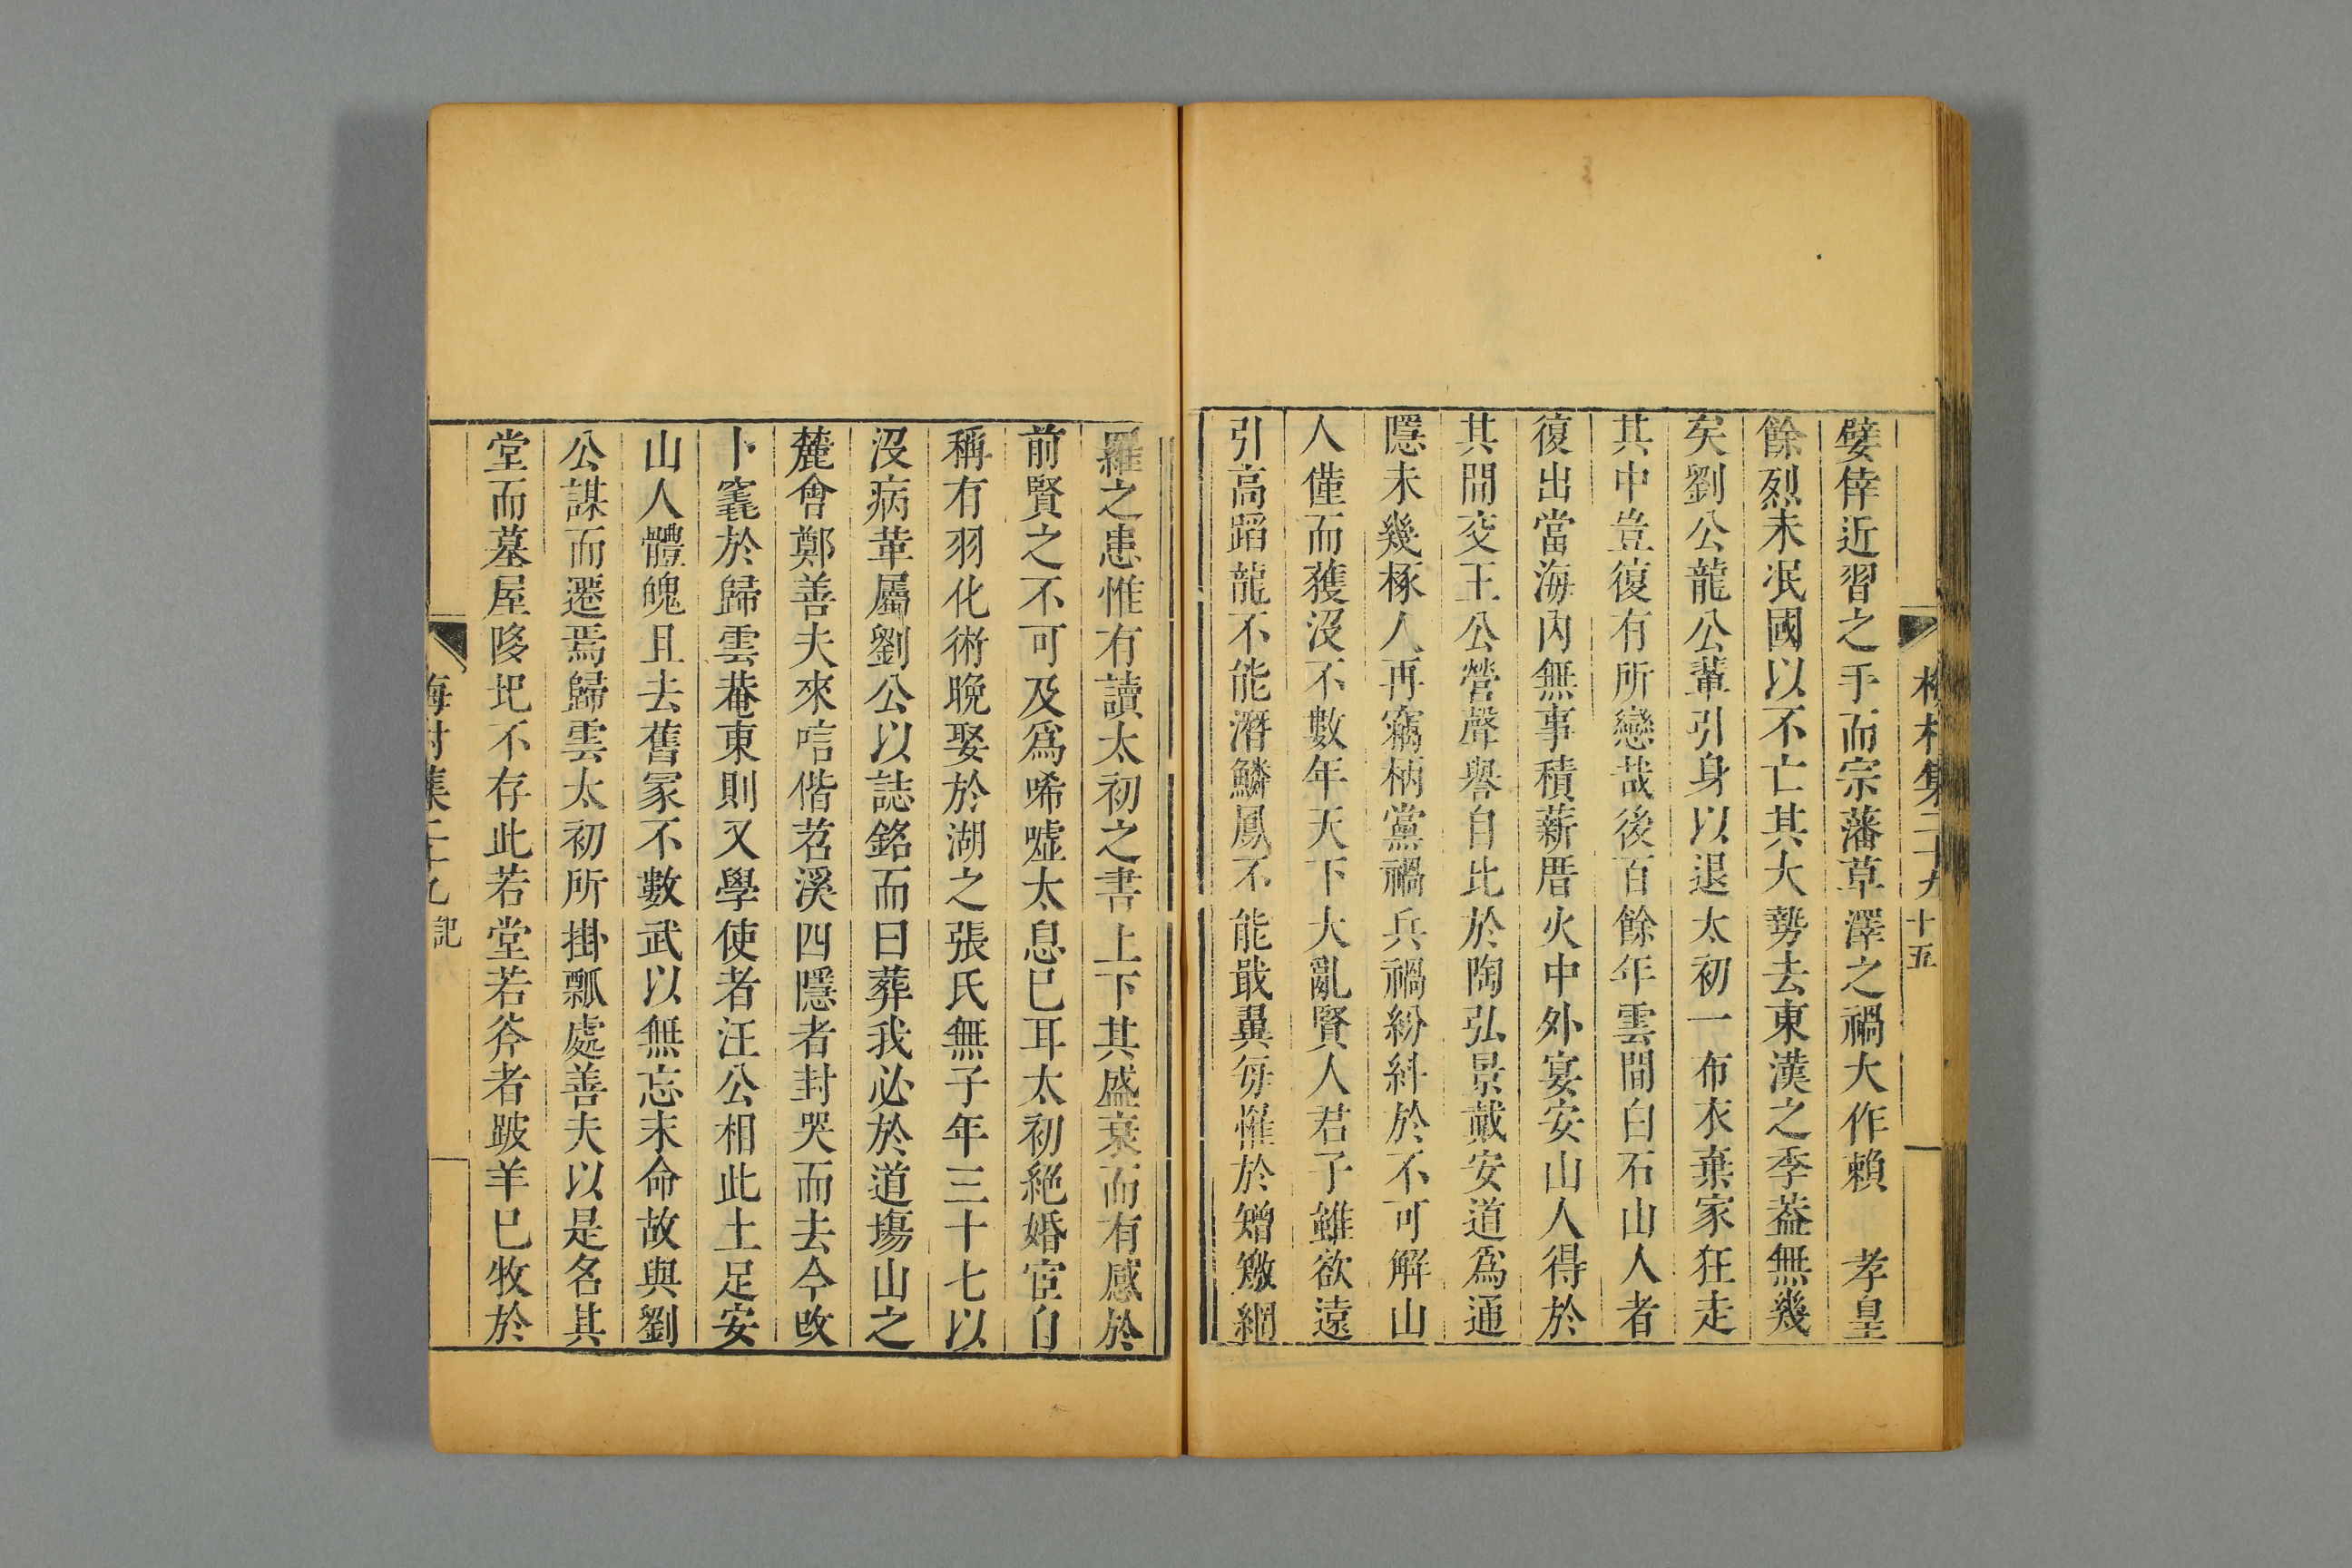 嬖倖近習之手而宗藩草澤之禍大作賴　孝皇
餘烈未泯國以不亡其大勢去東漢之季葢無幾
矣劉公龍公輩引身以退太初一布衣棄家狂走
其中豈復有所戀哉後百餘年雲間白石山人者
復出當海內無事積薪厝火中外宴安山人得於
其間交王公營聲譽自比於陶弘景戴安道爲通
隱未幾椓人再竊柄黨禍兵禍紛糾於不可解山
人僅而獲沒不數年天下大亂賢人君子雖欲遠
引高蹈龍不能潛鱗鳳不能戢翼每懼於矰繳網
梅村集二十九
十五
羅之患惟有讀太初之書上下其盛衰而有感於
前賢之不可及爲唏嘘太息已耳太初絕婚宦自
稱有羽化術晚娶於湖之張氏無子年三十七以
沒病革屬劉公以誌銘而曰葬我必於道塲山之
麓會鄭善夫來唁偕苕溪四隱者封哭而去今改
卜窀於歸雲菴東則又學使者汪公相此土足安
山人體魄且去舊冢不數武以無忘末命故與劉
公謀而遷焉歸雲太初所掛瓢處善夫以是名其
堂而墓屋陊圯不存此若堂若斧者跛羊已牧於
梅村集二十九
記